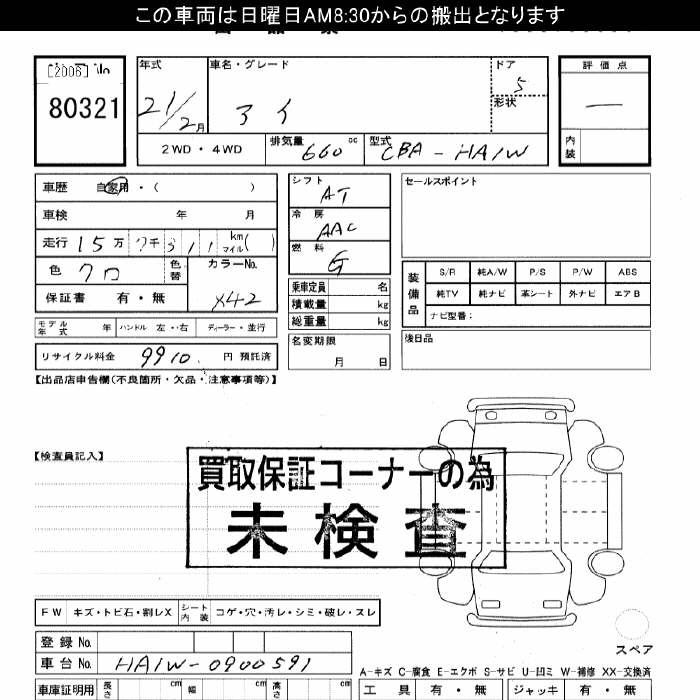 この車両は日曜日AM8:30からの搬出となります
[2006]
80321
年式 21/2月
車名・グレード アイ
ドア 5
形状
評価点 —
内装
2WD・4WD
排気量 660 cc
型式 CBA-HA1W
車歴 自家用・( )
車検 年 月
走行 15万7千311 km マイル( )
色 クロ 色替
カラーNo. X42
保証書 有・無
モデル年式 年 ハンドル 左・右 ディーラー・並行
リサイクル料金 9910 円 預託済
シフト AT
冷房 AAC
燃料 G
乗車定員 名
積載量 kg
総重量 kg
名変期限 月 日
セールスポイント
装備品
S/R 純A/W P/S P/W ABS
純TV 純ナビ 革シート 外ナビ エアB
ナビ型番:
後日品
【出品店申告欄(不良箇所・欠品・注意事項等)】
【検査員記入】
買取保証コーナーの為
未検査
FW キズ・トビ石・割レX シート内装 コゲ・穴・汚レ・シミ・破レ・スレ
登録No.
車台No. HA1W-0900591
スペア
A-キズ C-腐食 E-エクボ S-サビ U-凹ミ W-補修 XX-交換済
車庫証明用 長さ cm 幅 cm 高さ cm
工具 有・無 ジャッキ 有・無